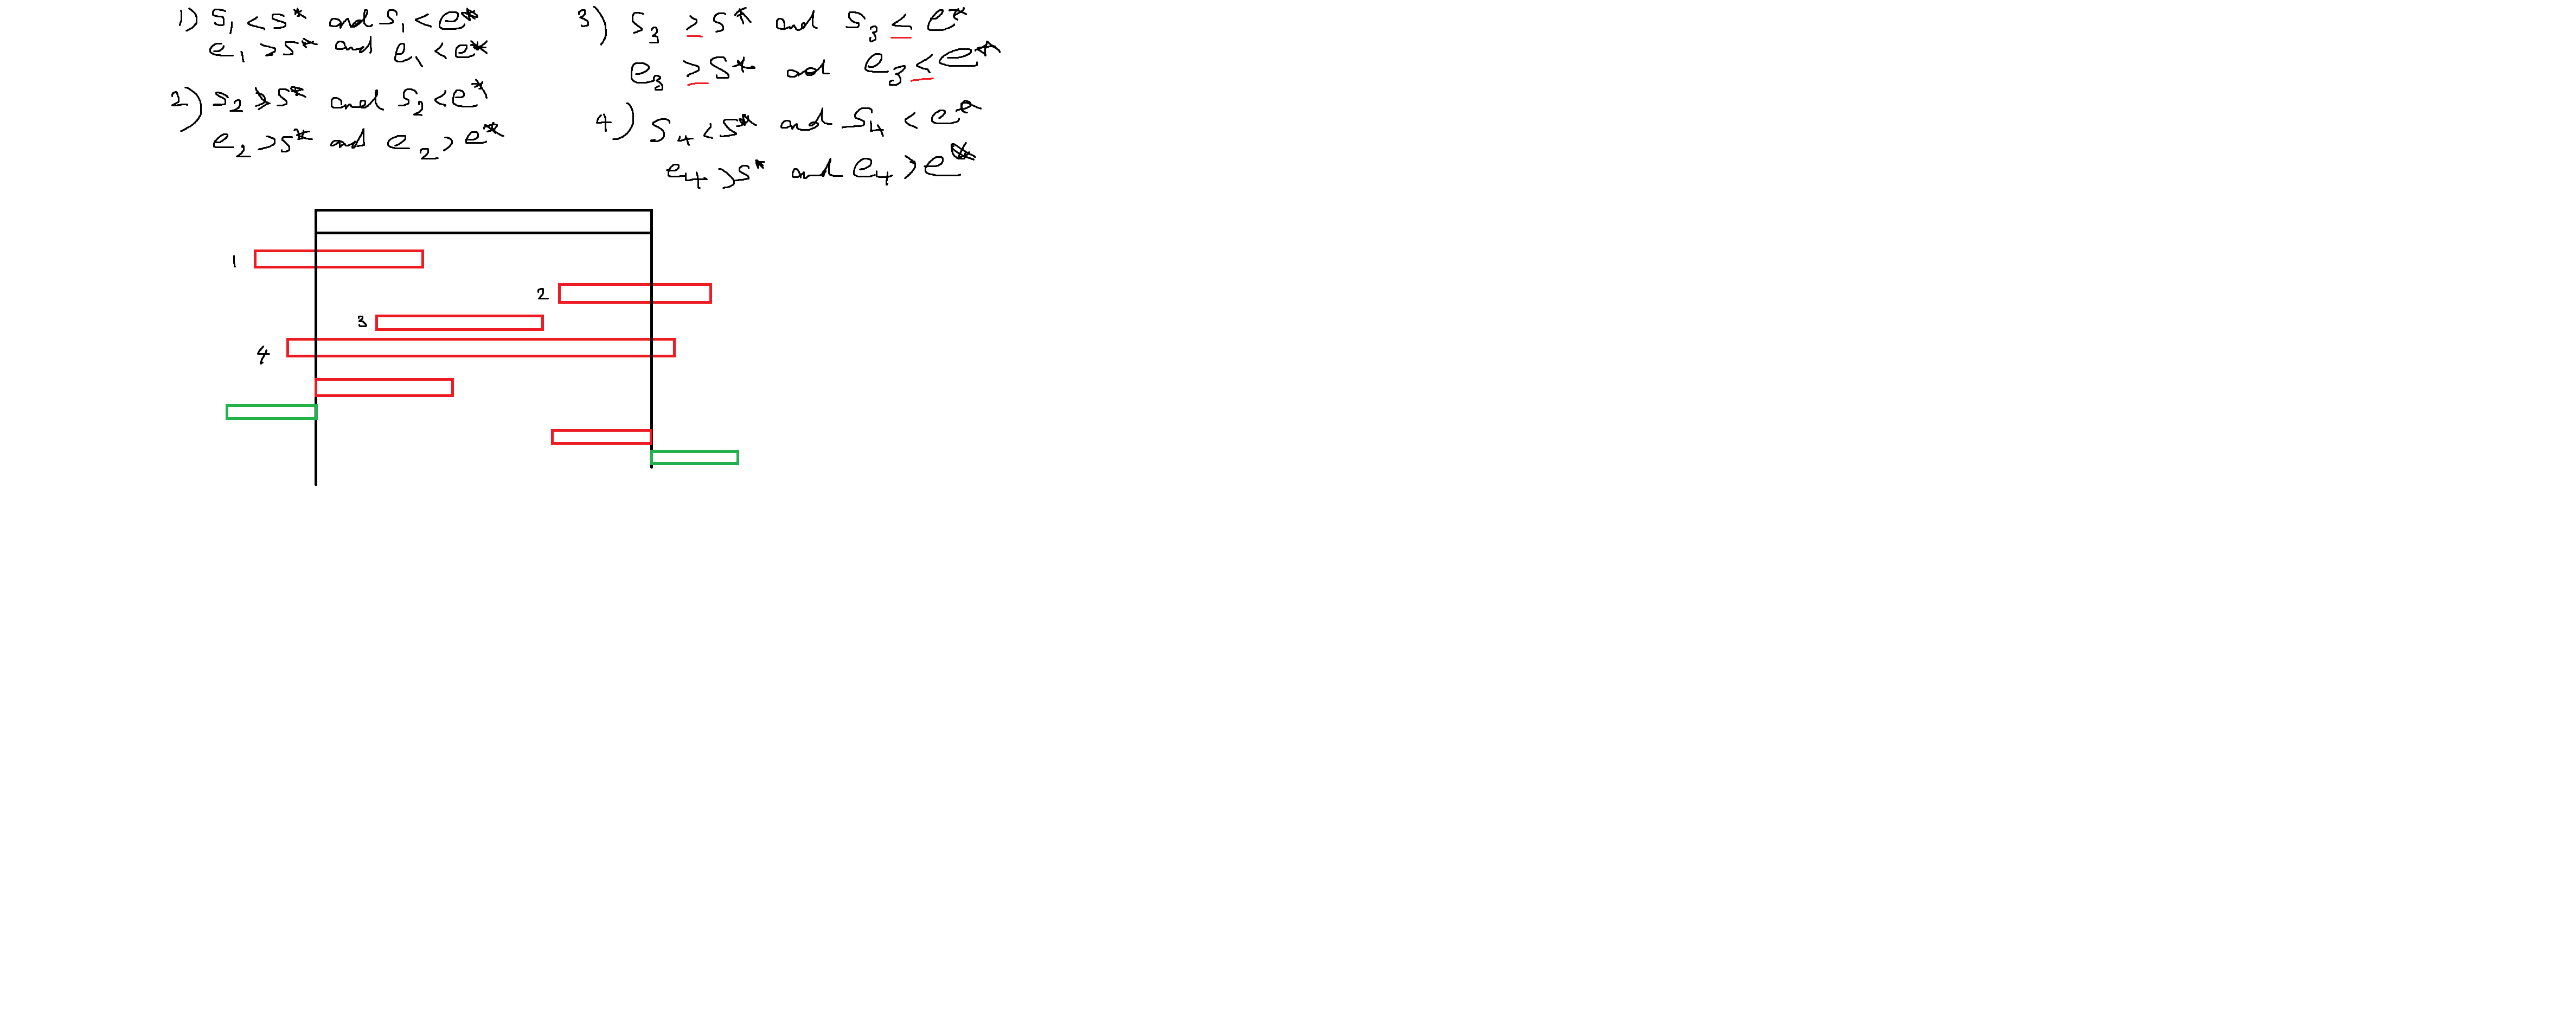 1) s₁ < s* and s₁ < e*
e₁ > s* and e₁ < e*
2) s₂ ≥ s* and s₂ < e*
e₂ > s* and e₂ > e*
3) s₃ ≥ s* and s₃ ≤ e*
e₃ ≥ s* and e₃ ≤ e*
4) s₄ < s* and s₄ < e*
e₄ > s* and e₄ > e*
1
2
3
4